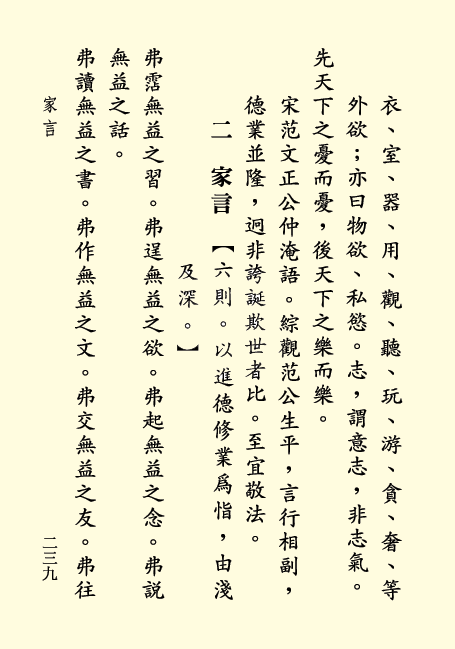 衣、室、器、用、觀、聽、玩、游、貪、奢、等
外欲；亦曰物欲、私慾。志，謂意志，非志氣。
先天下之憂而憂，後天下之樂而樂。
宋范文正公仲淹語。綜觀范公生平，言行相副，
德業並隆，迥非誇誕欺世者比。至宜敬法。
二　家言【六則。以進德修業爲恉，由淺
及深。】
弗霑無益之習。弗逞無益之欲。弗起無益之念。弗説
無益之話。
弗讀無益之書。弗作無益之文。弗交無益之友。弗往
家言
二三九